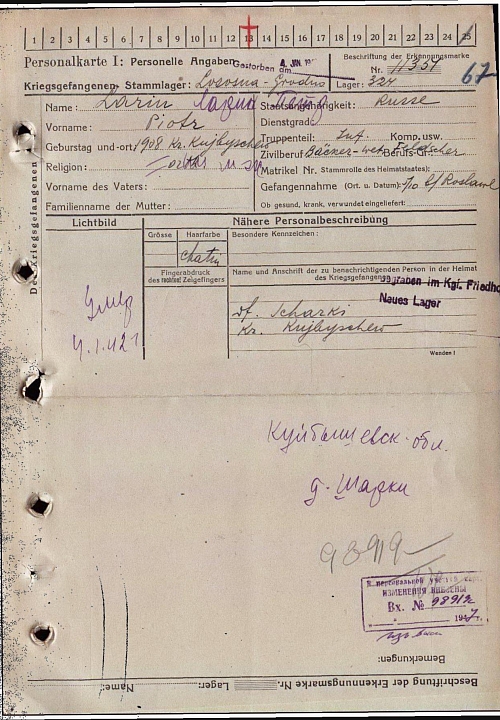 1 2 3 4 5 6 7 8 9 10 11 12 13 14 15 16 17 18 19 20 21 22 23 24 25
Personalkarte I: Personelle Angaben
Gestorben am 4. JAN. 19
Beschriftung der Erkennungsmarke
Nr. 11351
Kriegsgefangenen-Stammlager: Lososna-Grodno
Lager: 324
67
Des Kriegsgefangenen
Name: Larin Ларин Петр
Staatsangehörigkeit: Russe
Vorname: Piotr
Dienstgrad:
Truppenteil: Inf. Komp. usw.
Geburtstag und -ort: 1908 Kr. Kujbyschew
Zivilberuf: Bäcker Berufs-Gr.:
Religion: orth.
Matrikel Nr. (Stammrolle des Heimatstaates):
Vorname des Vaters:
Gefangennahme (Ort u. Datum): Roslawl
Familienname der Mutter:
Ob gesund, krank, verwundet eingeliefert:
Lichtbild
Nähere Personalbeschreibung
Grösse
Haarfarbe
Besondere Kennzeichen:
Fingerabdruck
des rechten! Zeigefingers
Name und Anschrift der zu benachrichtigenden Person in der Heimat
des Kriegsgefangenen
begraben im Kgf. Friedho
Neues Lager
Умер
4.1.42 г
Df. Scharki
Kr. Kujbyschew
Wenden!
Куйбышевск. обл.
д. Шарки
98919
ИЗМЕНЕНИЯ ВНЕСЕНЫ
Вх. № 98919
194 г.
Bemerkungen:
Beschriftung der Erkennungsmarke Nr. Lager: Name: